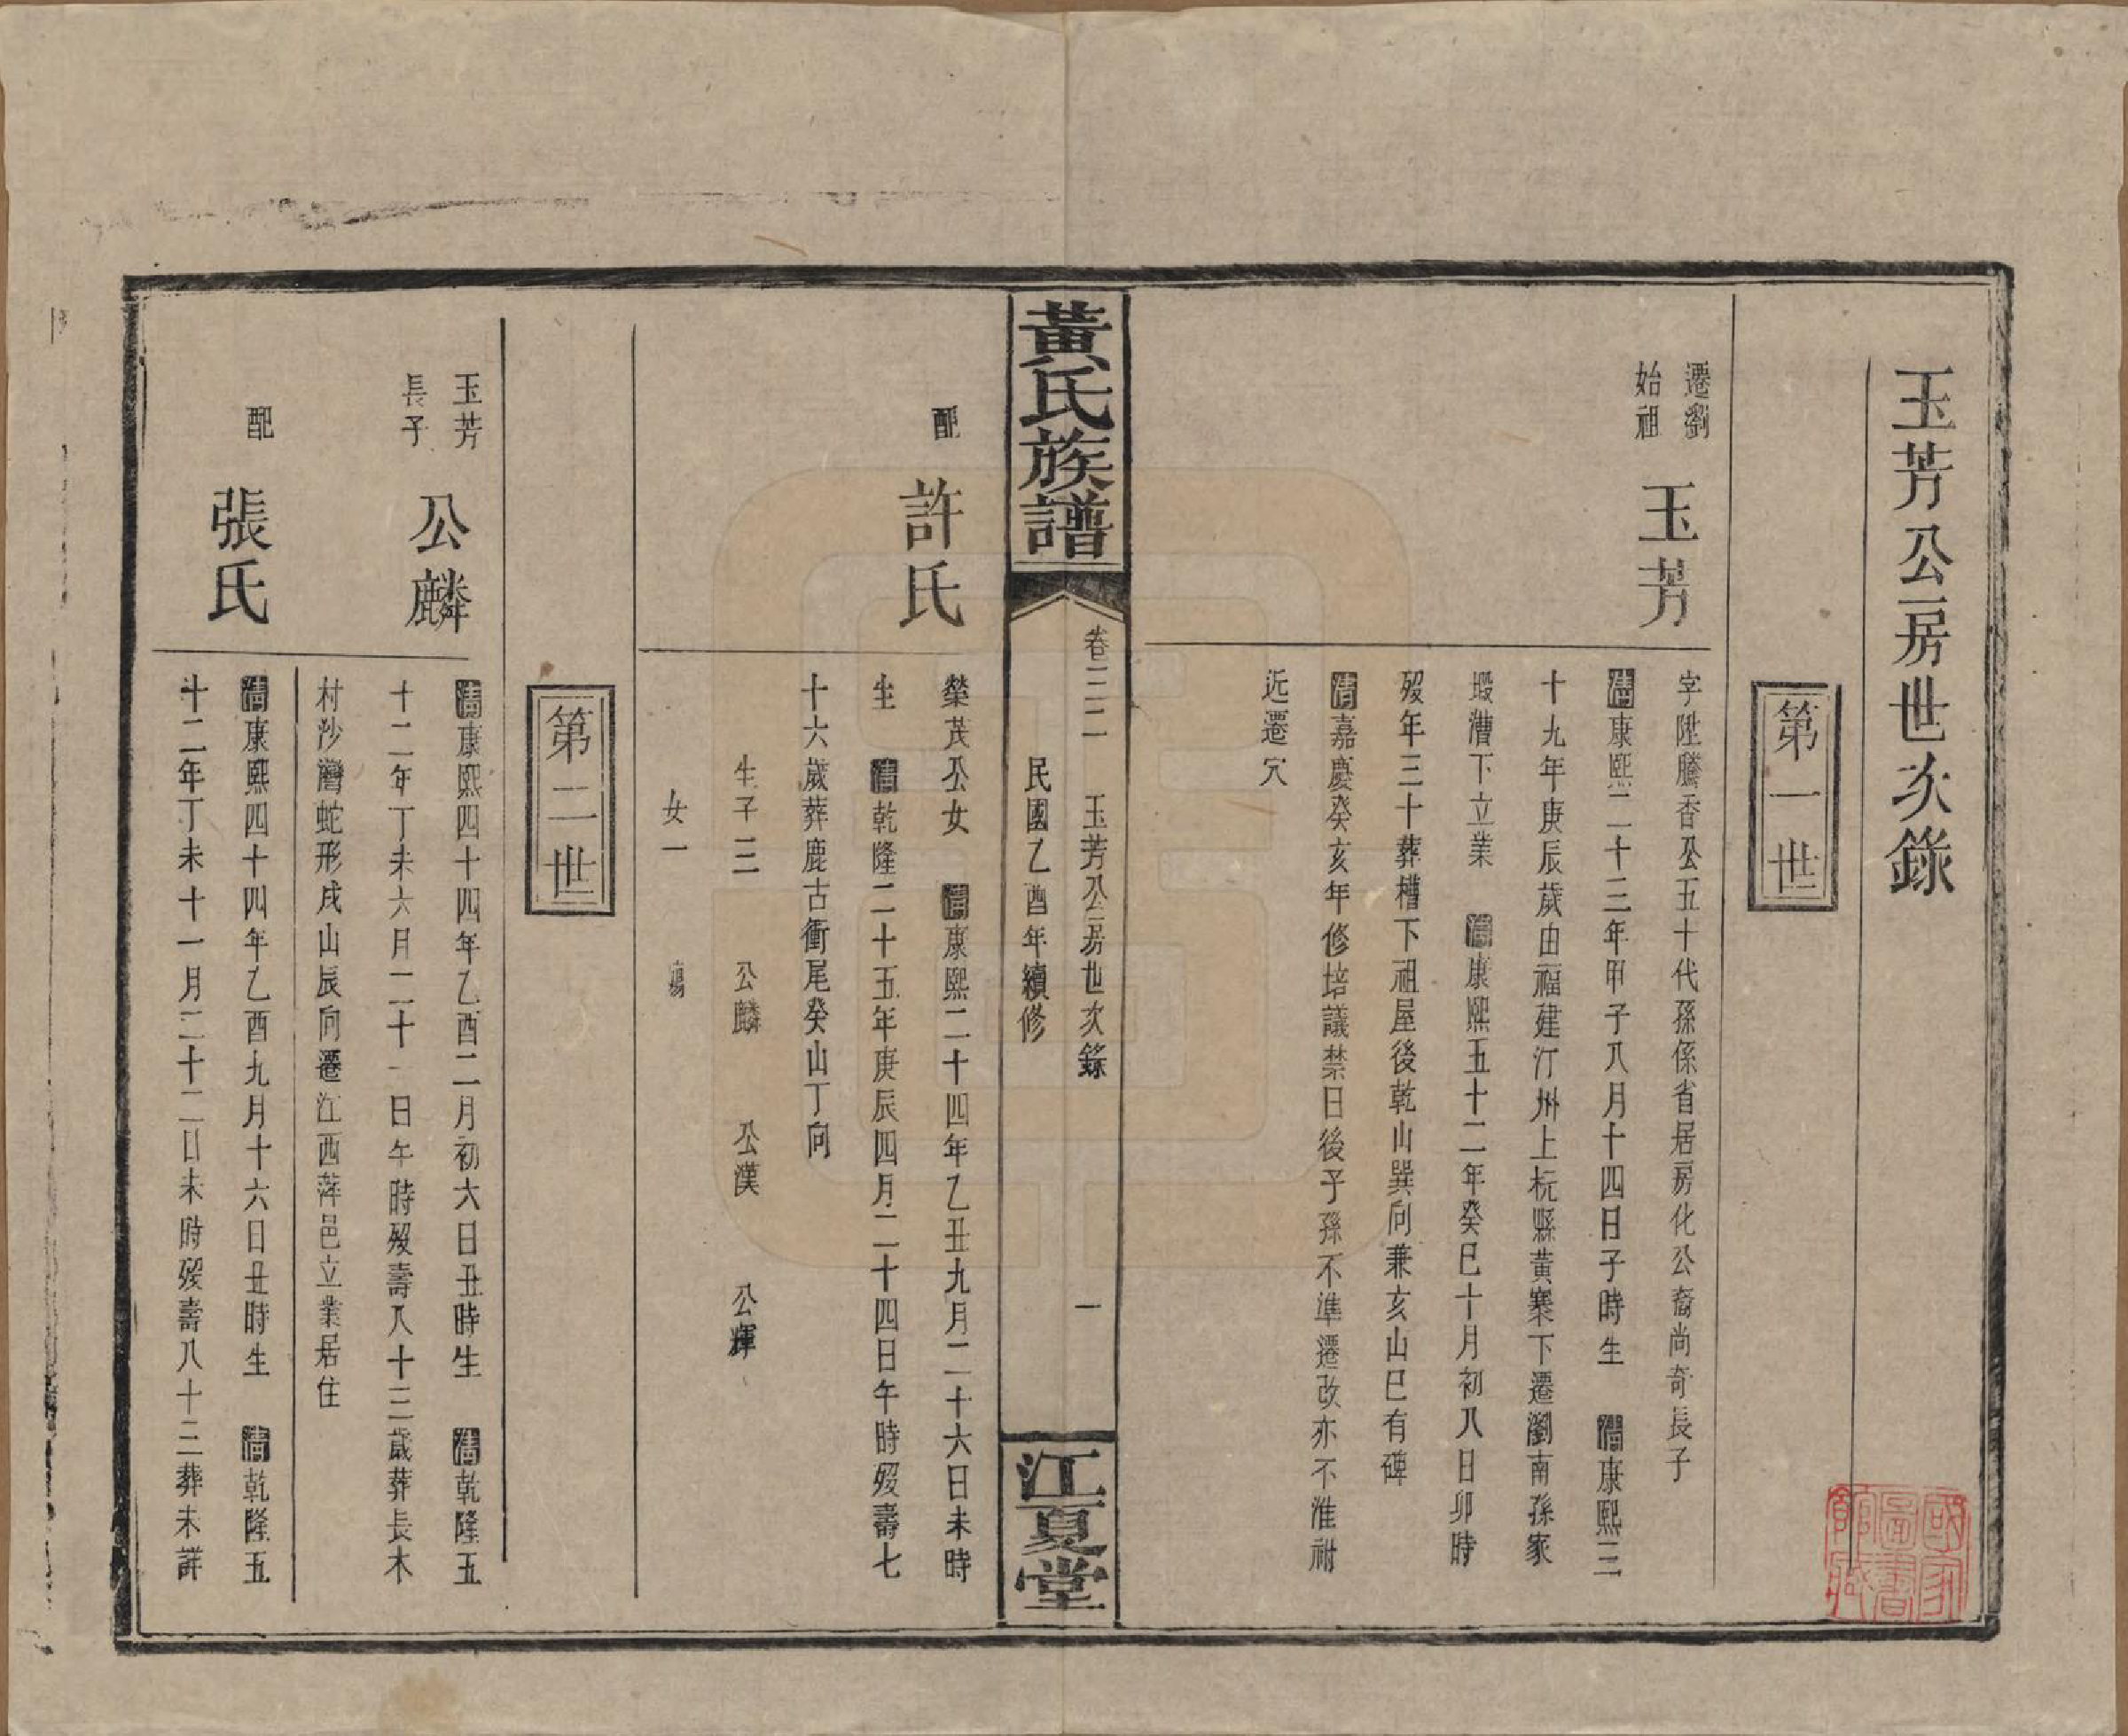 玉芳公房世次錄
第一世
遷瀏
始祖
玉芳
字陞騰香公五十代孫係省居房化公裔尚奇長子
清康熙二十三年甲子八月十四日子時生 清康熙三
十九年庚辰歲由福建汀州上杭縣黃寨下遷瀏南孫家
塅漕下立業 清康熙五十二年癸巳十月初八日卯時
歿年三十葬槽下祖屋後乾山巽向兼亥山巳有碑
清嘉慶癸亥年修培議禁日後子孫不準遷改亦不准祔
近遷穴
黃氏族譜
卷三二 玉芳公房世次錄 一
民國乙酉年續修
江夏堂
配
許氏
榮茂公女 清康熙二十四年乙丑九月二十六日未時
生 清乾隆二十五年庚辰四月二十四日午時歿壽七
十六歲葬鹿古衝尾癸山丁向
生子三 公麟 公漢 公輝
女一
第二世
玉芳
長子
公麟
清康熙四十四年乙酉二月初六日丑時生 清乾隆五
十二年丁未六月二十一日午時歿壽八十三歲葬長木
村沙灣蛇形戌山辰向遷江西萍邑立業居住
配
張氏
清康熙四十四年乙酉九月十六日丑時生 清乾隆五
十二年丁未十一月二十二日未時歿壽八十三葬未詳
國家
圖書
館藏